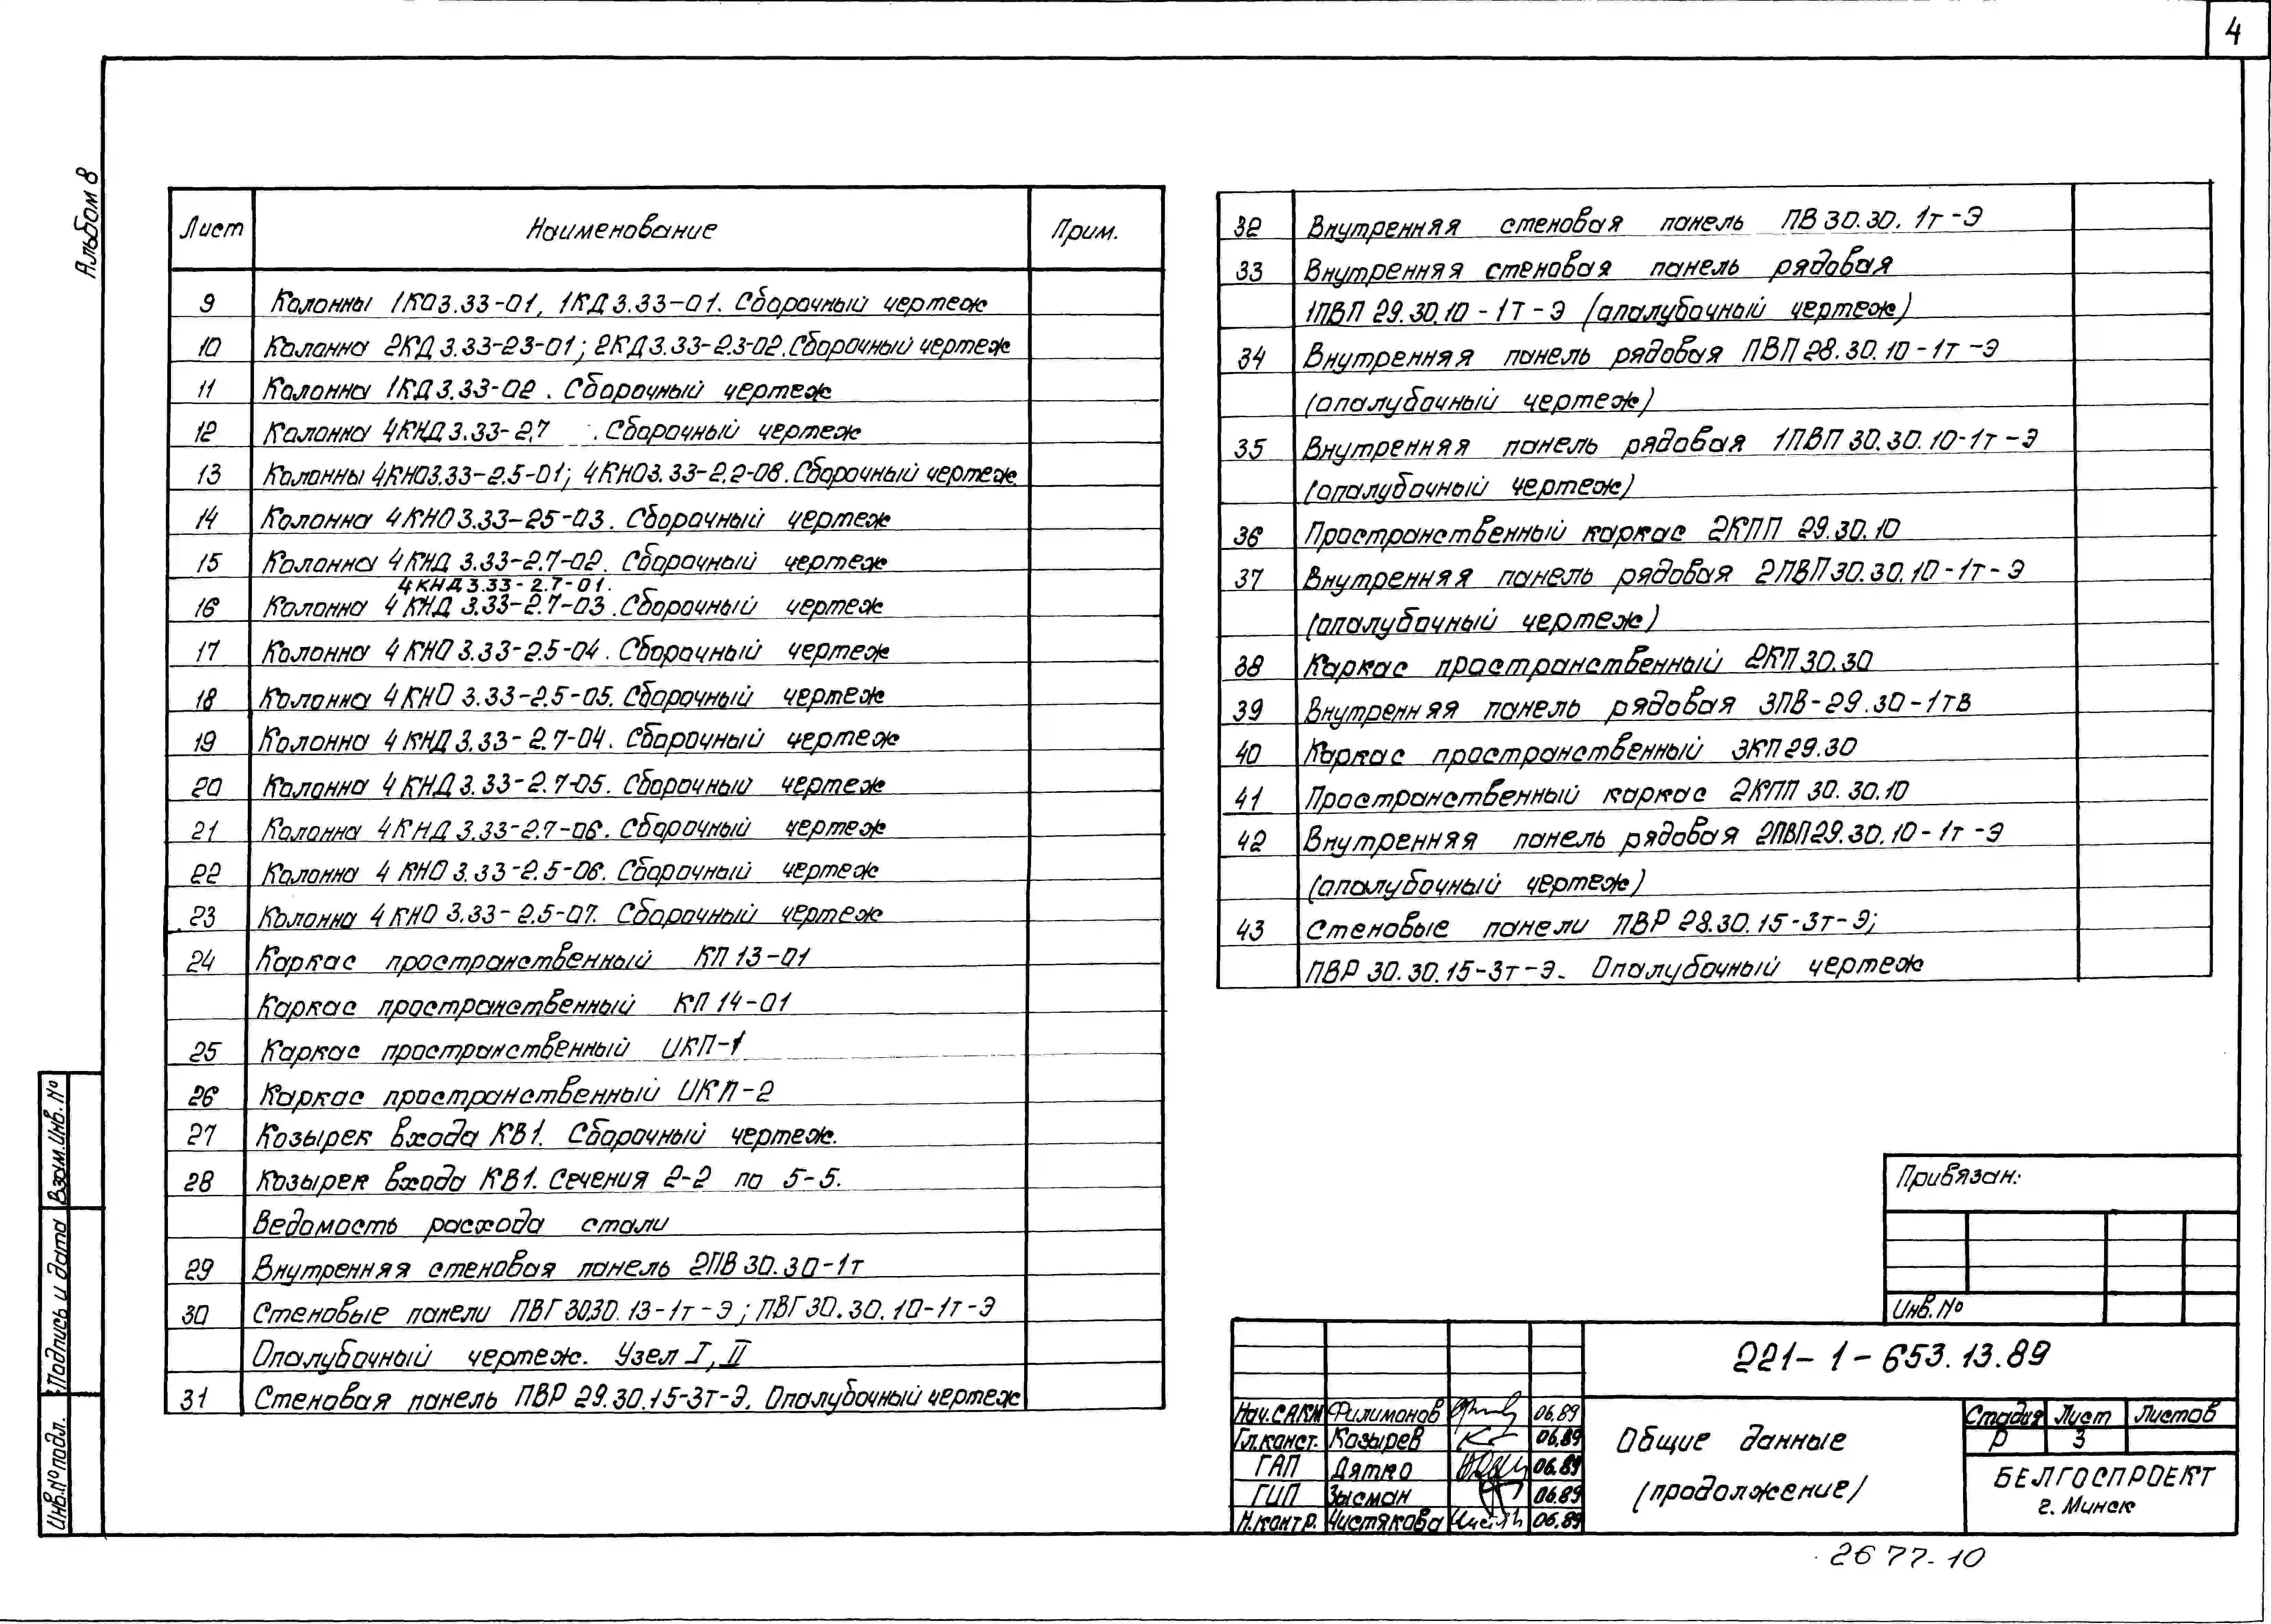 4
Альбом 8
Лист Наименование Прим.
9 Колонны 1КО3.33-01, 1КД3.33-01. Сборочный чертеж
10 Колонна 2КД3.33-23-01; 2КД3.33-2.3-02. Сборочный чертеж
11 Колонна 1КД3.33-02. Сборочный чертеж
12 Колонна 4КНД3.33-2.7 . Сборочный чертеж
13 Колонны 4КНО3.33-2.5-01; 4КНО3.33-2.2-08. Сборочный чертеж
14 Колонна 4КНО3.33-25-03. Сборочный чертеж
15 Колонна 4КНД 3.33-2.7-02. Сборочный чертеж
4КНД3.33-2.7-01.
16 Колонна 4КНД 3.33-2.7-03. Сборочный чертеж
17 Колонна 4КНО 3.33-2.5-04. Сборочный чертеж
18 Колонна 4КНО 3.33-2.5-05. Сборочный чертеж
19 Колонна 4КНД3.33-2.7-04. Сборочный чертеж
20 Колонна 4КНД3.33-2.7-05. Сборочный чертеж
21 Колонна 4КНД3.33-2.7-06. Сборочный чертеж
22 Колонна 4КНО3.33-2.5-06. Сборочный чертеж
23 Колонна 4КНО 3.33-2.5-07. Сборочный чертеж
24 Каркас пространственный КП 13-01
Каркас пространственный КП 14-01
25 Каркас пространственный ИКП-1
26 Каркас пространственный ИКП-2
27 Козырек входа КВ1. Сборочный чертеж.
28 Козырек входа КВ1. Сечения 2-2 по 5-5.
Ведомость расхода стали
29 Внутренняя стеновая панель 2ПВ30.30-1т
30 Стеновые панели ПВГ3030.13-1т-Э; ПВГ30.30.10-1т-Э
Опалубочный чертеж. Узел I, II
31 Стеновая панель ПВР 29.30.15-3т-Э. Опалубочный чертеж
32 Внутренняя стеновая панель ПВ30.30.1т-Э
33 Внутренняя стеновая панель рядовая
1ПВП 29.30.10-1т-Э (опалубочный чертеж)
34 Внутренняя панель рядовая ПВП28.30.10-1т-Э
(опалубочный чертеж)
35 Внутренняя панель рядовая 1ПВП30.30.10-1т-Э
(опалубочный чертеж)
36 Пространственный каркас 2КПП 29.30.10
37 Внутренняя панель рядовая 2ПВП30.30.10-1т-Э
(опалубочный чертеж)
38 Каркас пространственный 2КП30.30
39 Внутренняя панель рядовая 3ПВ-29.30-1тВ
40 Каркас пространственный 3КП29.30
41 Пространственный каркас 2КПП 30.30.10
42 Внутренняя панель рядовая 2ПВП29.30.10-1т-Э
(опалубочный чертеж)
43 Стеновые панели ПВР 28.30.15-3т-Э;
ПВР 30.30.15-3т-Э. Опалубочный чертеж
Привязан:
Инв.№
221-1-653.13.89
Нач.САКМ Филимонов 06.89
Гл.конст. Козырев 06.89
ГАП Дятко 06.89
ГИП Зысман 06.89
Н.контр. Чистякова 06.89
Общие данные
(продолжение)
Стадия Лист Листов
Р 3
БЕЛГОСПРОЕКТ
г. Минск
2677-10
Взам.инв.№
Подпись и дата
Инв.№подл.